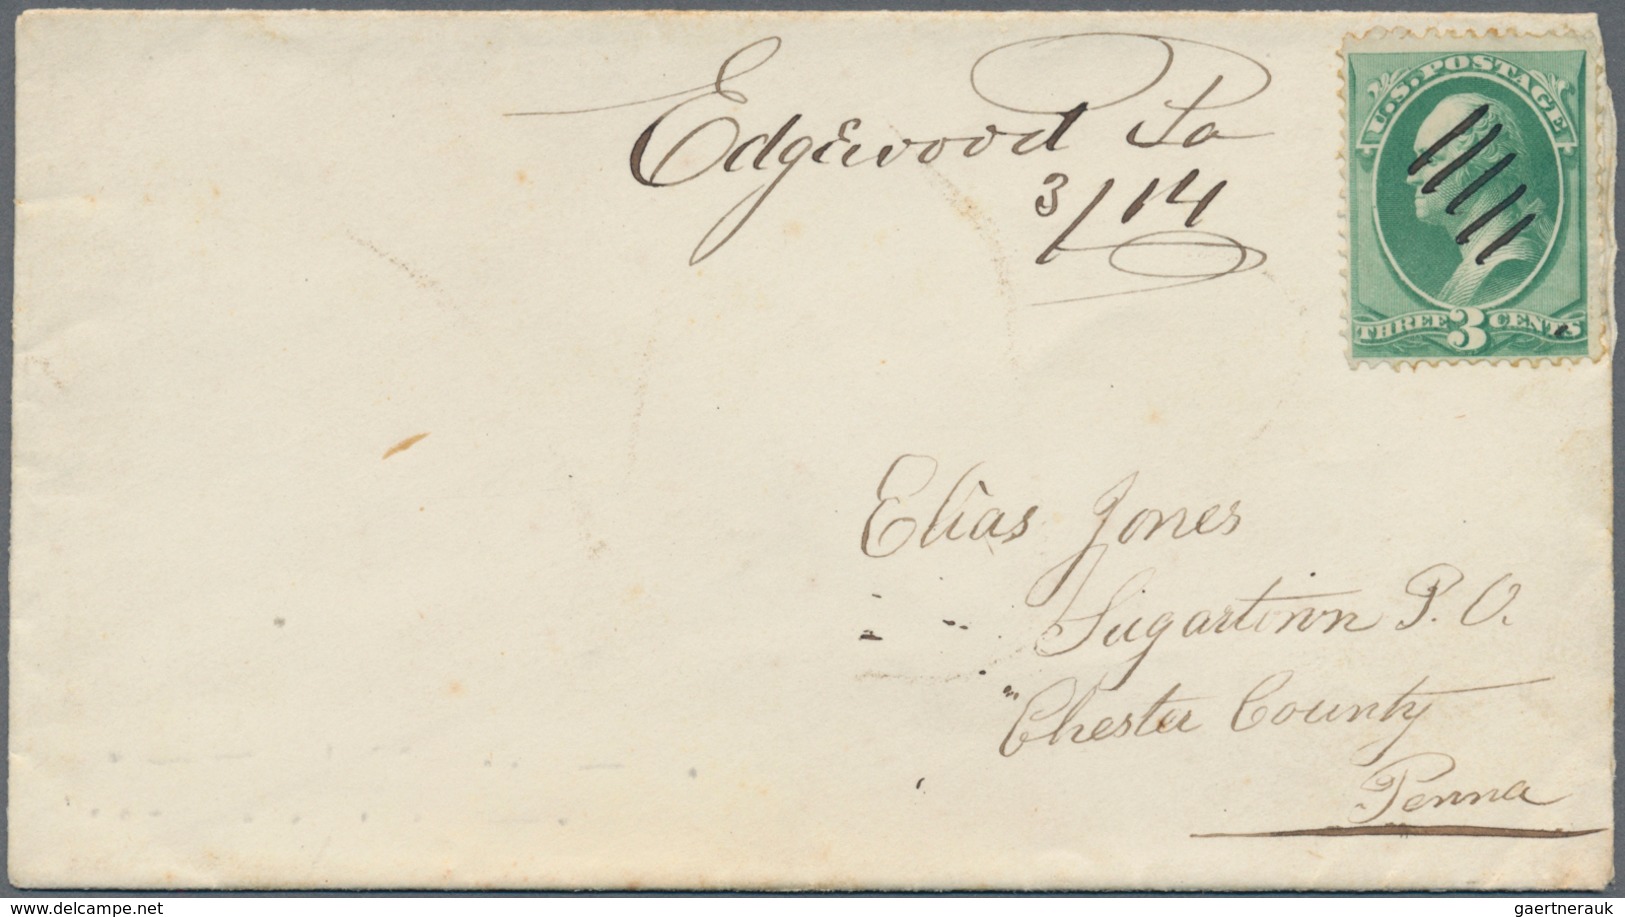 Edgewood Pa
3/14
U.S. POSTAGE
THREE 3 CENTS
Elias Jones
Sugartown P. O.
Chester County
Penna
www.delcampe.net
gaertnerauk